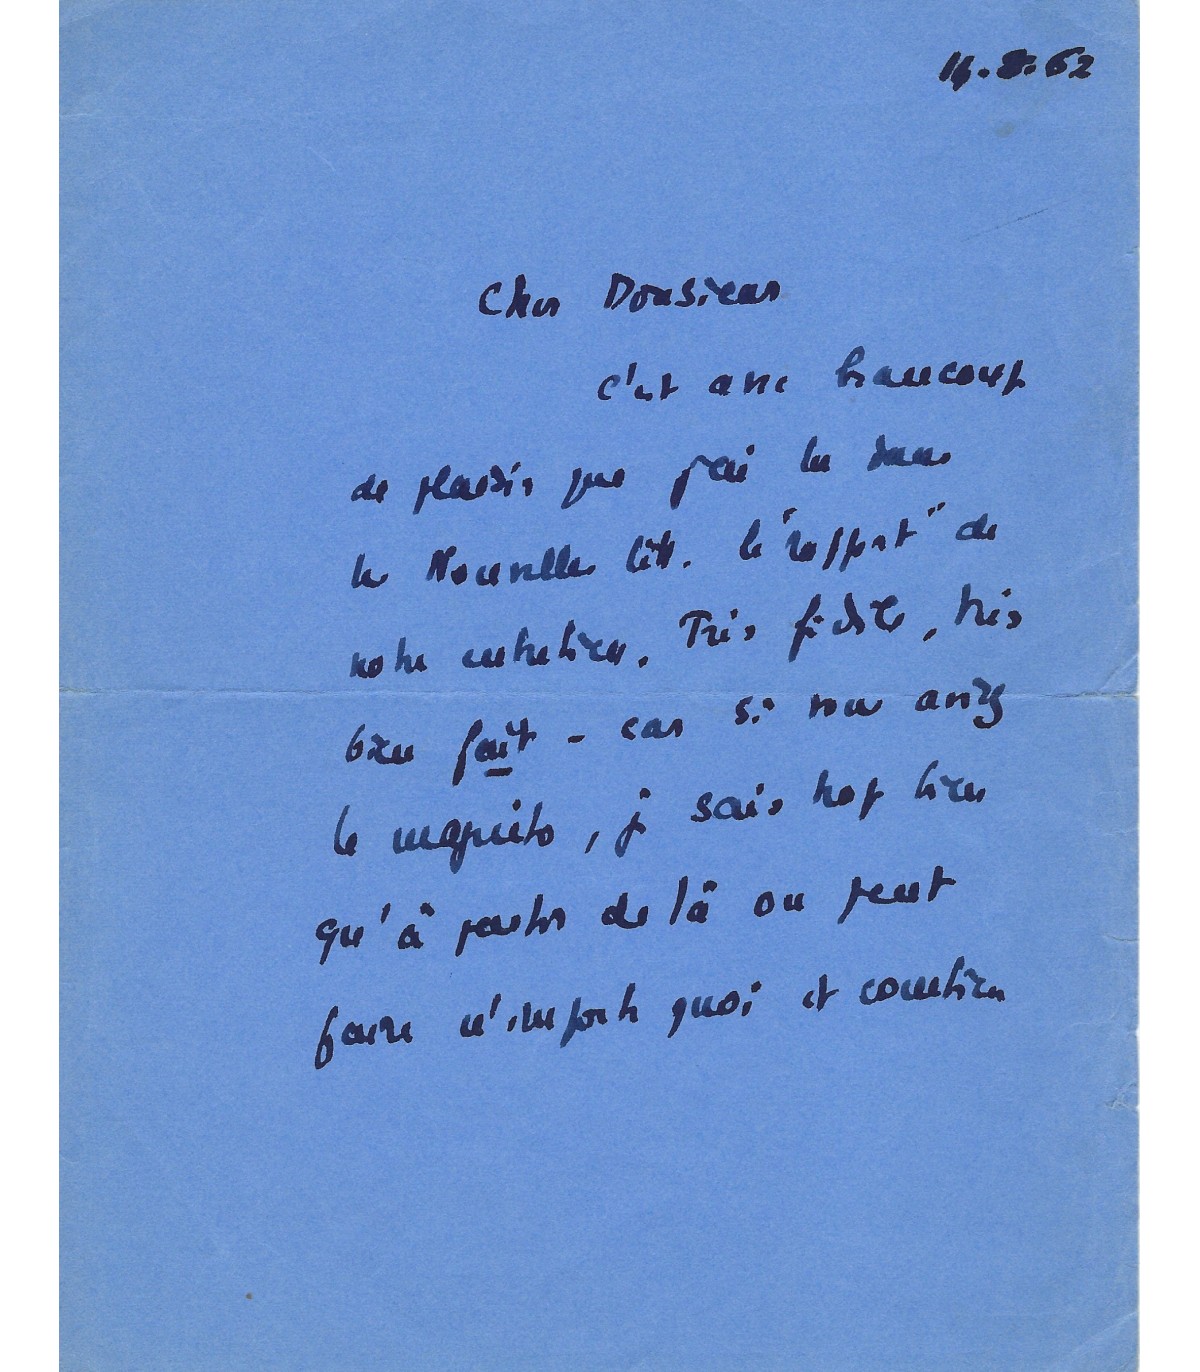 14.8.62
Cher Monsieur
c'est avec beaucoup
de plaisir que j'ai lu dans
les Nouvelles litt. le "rapport" de
notre entretien. Très fidèle, très
bien fait - car si vous aviez
le magnéto, je sais trop bien
qu'à partir de là on peut
faire n'importe quoi et combien